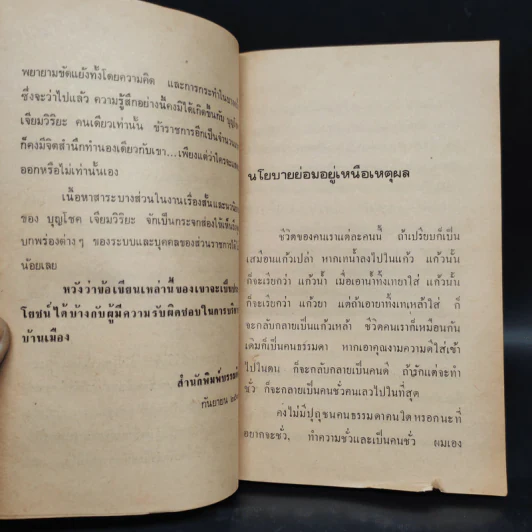 พยายามขัดแย้งทั้งโดยความคิด และการกระทำในบาง
ซึ่งจะว่าไปแล้ว ความรู้สึกอย่างนี้คงมิได้เกิดขึ้นกับ บุญโชค
เจียมวิริยะ คนเดียวเท่านั้น ข้าราชการอีกเป็นจำนวน
ก็คงมีจิตสำนึกทำนองเดียวกับเขา...เพียงแต่ว่าใครจะ
ออกหรือไม่เท่านั้นเอง
เนื้อหาสาระบางส่วนในงานเรื่องสั้นและ
ของ บุญโชค เจียมวิริยะ จักเป็นกระจกส่องให้เห็น
บกพร่องต่างๆ ของระบบและบุคคลของส่วนราชการได้
น้อยเลย
หวังว่าข้อเขียนเหล่านี้ของเขาจะเป็น
โยชน์ได้บ้างกับผู้มีความรับผิดชอบในการ
บ้านเมือง
สำนักพิมพ์
กันยายน
นโยบายย่อมอยู่เหนือเหตุผล
ชีวิตของคนเราแต่ละคนนี้ ถ้าเปรียบก็เป็น
เสมือนแก้วเปล่า หากเทน้ำลงไปในแก้ว แก้วนั้น
ก็จะเรียกว่า แก้วน้ำ เมื่อเอาน้ำทิ้งเทยาใส่ แก้วนั้น
ก็จะเรียกว่า แก้วยา แต่ถ้าเอายาทิ้งเทเหล้าใส่ ก็
จะกลับกลายเป็นแก้วเหล้า ชีวิตคนเราก็เหมือนกัน
เดิมก็เป็นคนธรรมดา หากเอาคุณงามความดีใส่เข้า
ไปในตน ก็จะกลับกลายเป็นคนดี ถ้ารักแต่จะทำ
ชั่ว ก็จะกลายเป็นคนชั่วคนเลวไปในที่สุด
คงไม่มีปุถุชนคนธรรมดาคนใดหรอกนะที่
อยากจะชั่ว, ทำความชั่วและเป็นคนชั่ว ผมเอง